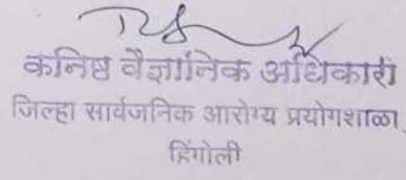 कनिष्ठ वैज्ञानिक अधिकारी
जिल्हा सार्वजनिक आरोग्य प्रयोगशाळा,
हिंगोली